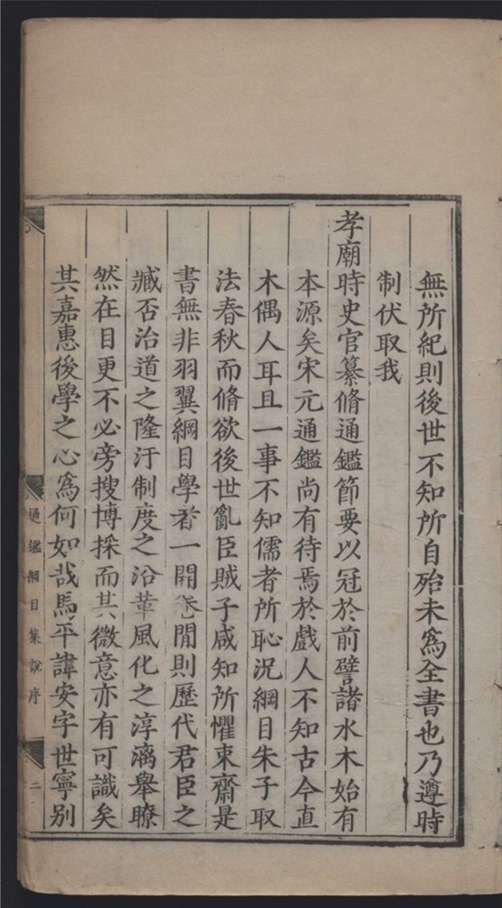 無所紀則後世不知所自殆未爲全書也乃遵時
制伏取我
孝廟時史官纂脩通鑑節要以冠於前譬諸水木始有
本源矣宋元通鑑尚有待焉於戲人不知古今直
木偶人耳且一事不知儒者所恥况綱目朱子取
法春秋而脩欲後世亂臣賊子咸知所懼東齋是
書無非羽翼綱目學者一開卷閒則歷代君臣之
臧否治道之隆汙制度之沿革風化之淳漓舉瞭
然在目更不必旁搜博採而其微意亦有可識矣
其嘉惠後學之心爲何如哉馬平諱安字世寧别
通鑑綱目集說序
二